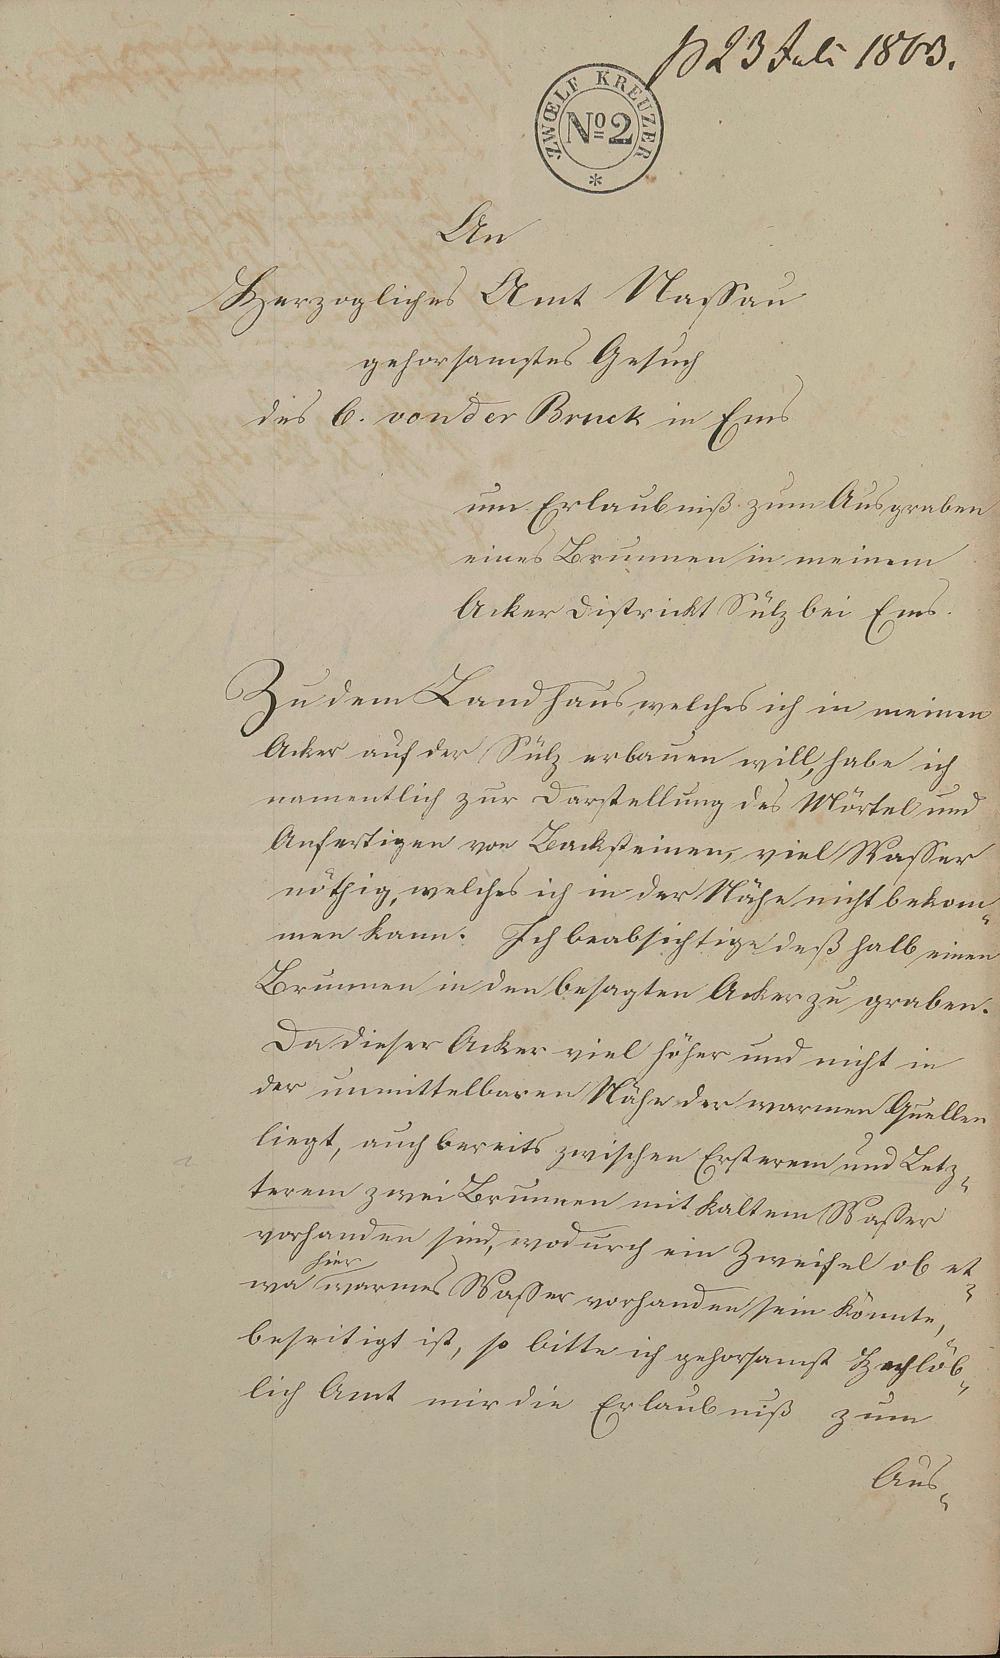 p 23 Juli 1863.
ZWŒLF KREUZER
No 2
*
An
Herzogliches Amt Nassau
gehorsamstes Gesuch
des C. von der Bruck in Ems
um Erlaubniß zum Ausgraben
eines Brunnen in meinem
Acker District Sülz bei Ems.
Zu dem Landhaus, welches ich in meinen
Acker auf der Sülz erbauen will, habe ich
namentlich zur Darstellung des Mörtel und
Anfertigen von Backsteinen, viel Wasser
nöthig, welches ich in der Nähe nicht bekom-
men kann. Ich beabsichtige deßhalb einen
Brunnen in den besagten Acker zu graben.
Da dieser Acker viel höher und nicht in
der unmittelbaren Nähe der warmen Quellen
liegt, auch bereits zwischen Ersterem und Letz-
terem zwei Brunnen mit kaltem Waßer
vorhanden sind, wodurch ein Zweifel ob et-
wa hier warmes Waßer vorhanden sein könnte,
beseitigt ist, so bitte ich gehorsamst Hochlöb-
lich Amt mir die Erlaubniß zum
Aus-